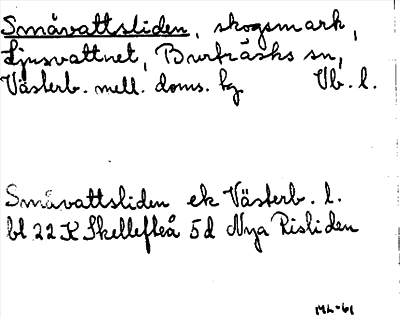 Småvattsliden, skogsmark,
Ljusvattnet, Burträsks sn,
Västerb. mell. doms. hg. Vb. l.
Småvattsliden ek Västerb. l.
bl 22 K Skellefteå 5d Nya Risliden
ML-61